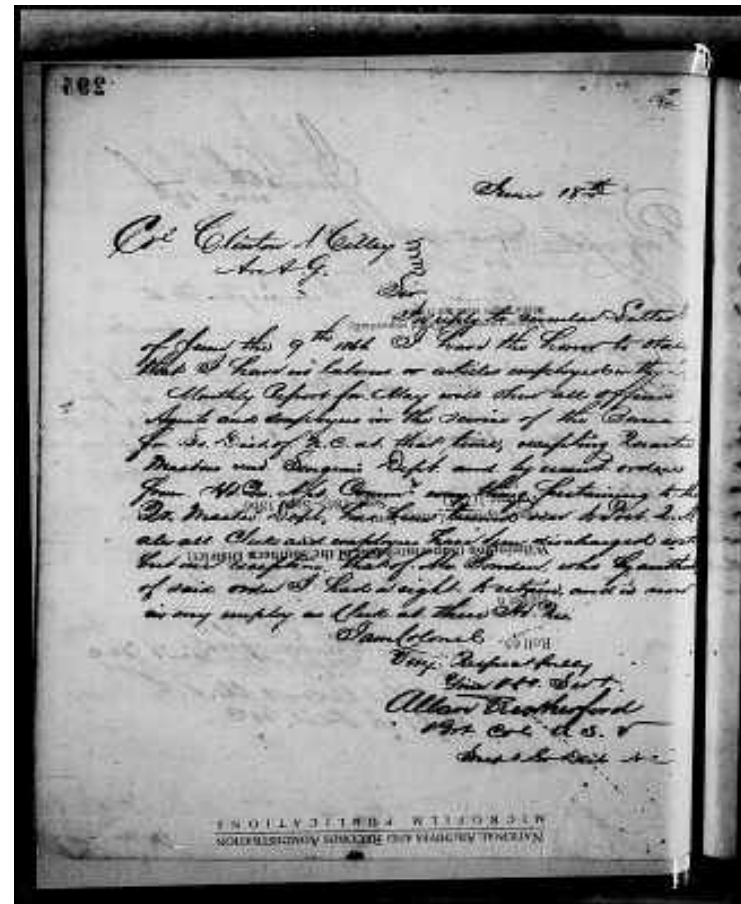 295
June 18th
Col Clinton A Cilley
A.A.G.
Sir
In reply to circular Letter
of June the 9th 1866 I have the honor to state
that I have no laborers or employed in the
Monthly Report for May will show all officers
Agents and employees in the service of the Bureau
for So. Dist of N.C. at that time, excepting Quarter
Masters and Surgeons Dept and by recent orders
from Hd Qrs. any thing pertaining to the
Qr. Master Dept, has been turned over to Post Q.M.
also all Clerks and employees have been discharged with
but one exception, that of Mr Borden, who by author
of said order I had a right to retain, and is now
in my employ as Clerk at these Hd Qrs.
I am Colonel
Very Respectfully
Your Obt. Servt.
Allan Rutherford
Col U. S. V
Supt So Dist N.C.
Wilmington (Superintendent of the Southern District)
Roll 69
NATIONAL ARCHIVES AND RECORDS ADMINISTRATION
MICROFILM PUBLICATIONS